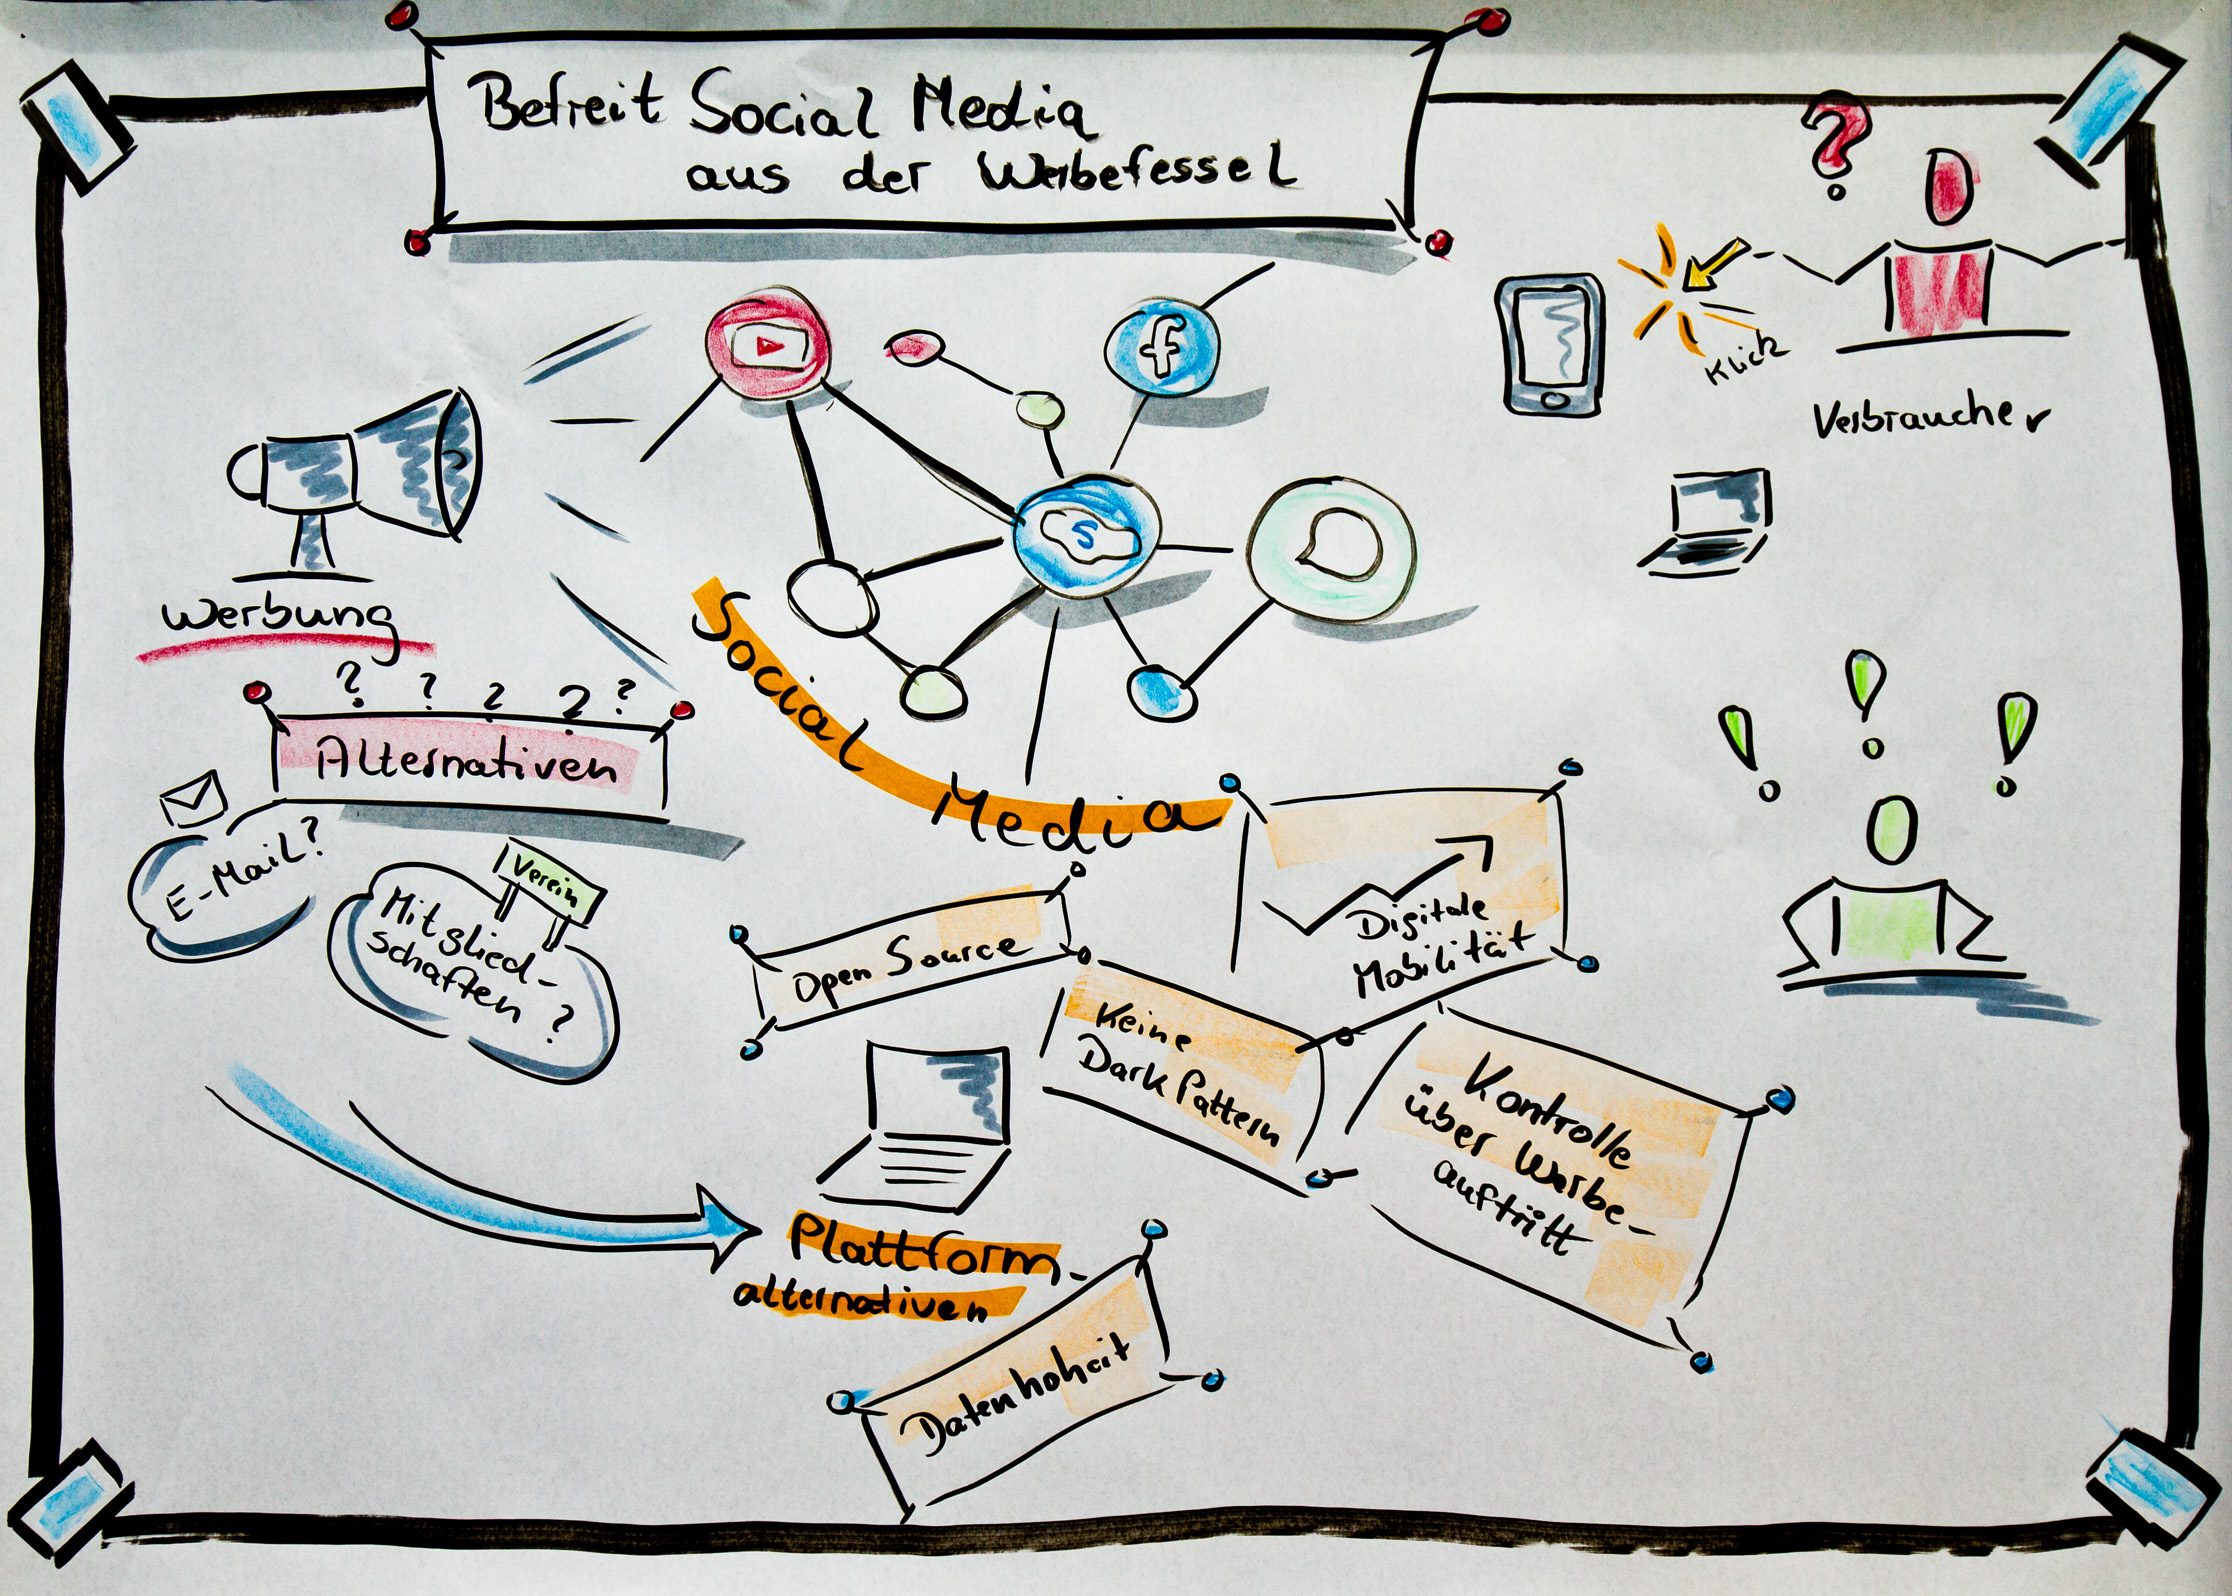 Befreit Social Media
aus der Werbefessel
?
f
Klick
Verbraucher
S
Werbung
Social Media
? ? ? ? ?
Alternativen
E-Mail?
Verein
Mitglied-
schaften ?
! ! !
Open Source
Digitale
Mobilität
Keine
Dark Pattern
Kontrolle
über Werbe-
auftritt
Plattform-
alternativen
Datenhoheit